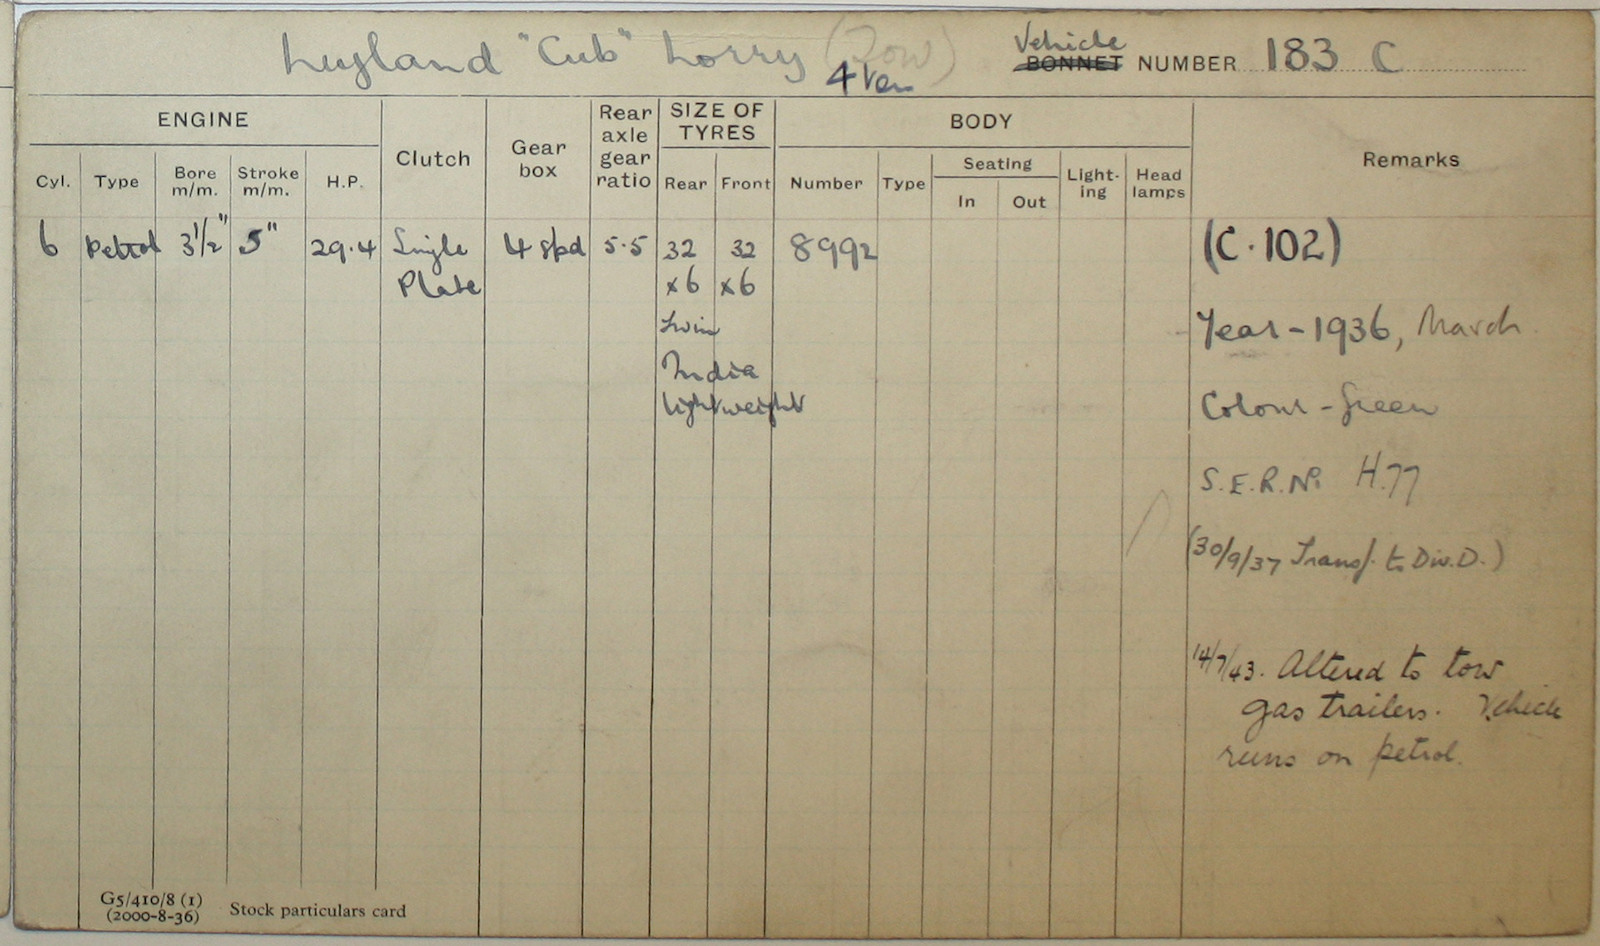 Leyland "Cub" Lorry (Tow)
4 Ton
Vehicle
BONNET NUMBER 183 C
ENGINE
Clutch
Gear box
Rear axle gear ratio
SIZE OF TYRES
BODY
Remarks
Cyl. Type Bore m/m. Stroke m/m. H.P.
Rear Front
Number Type Seating In Out Light-ing Head lamps
6 Petrol 3½" 5" 29.4 Single Plate 4 spd 5.5 32 x6 32 x6 8992
Twin
India
lightweight
(C.102)
Year - 1936, March.
Colour - Green
S.E.R.No. H.77
(30/9/37 Transf. to Div. D.)
14/7/43. Altered to tow
gas trailers. Vehicle
runs on petrol.
G5/410/8 (1)
(2000-8-36) Stock particulars card